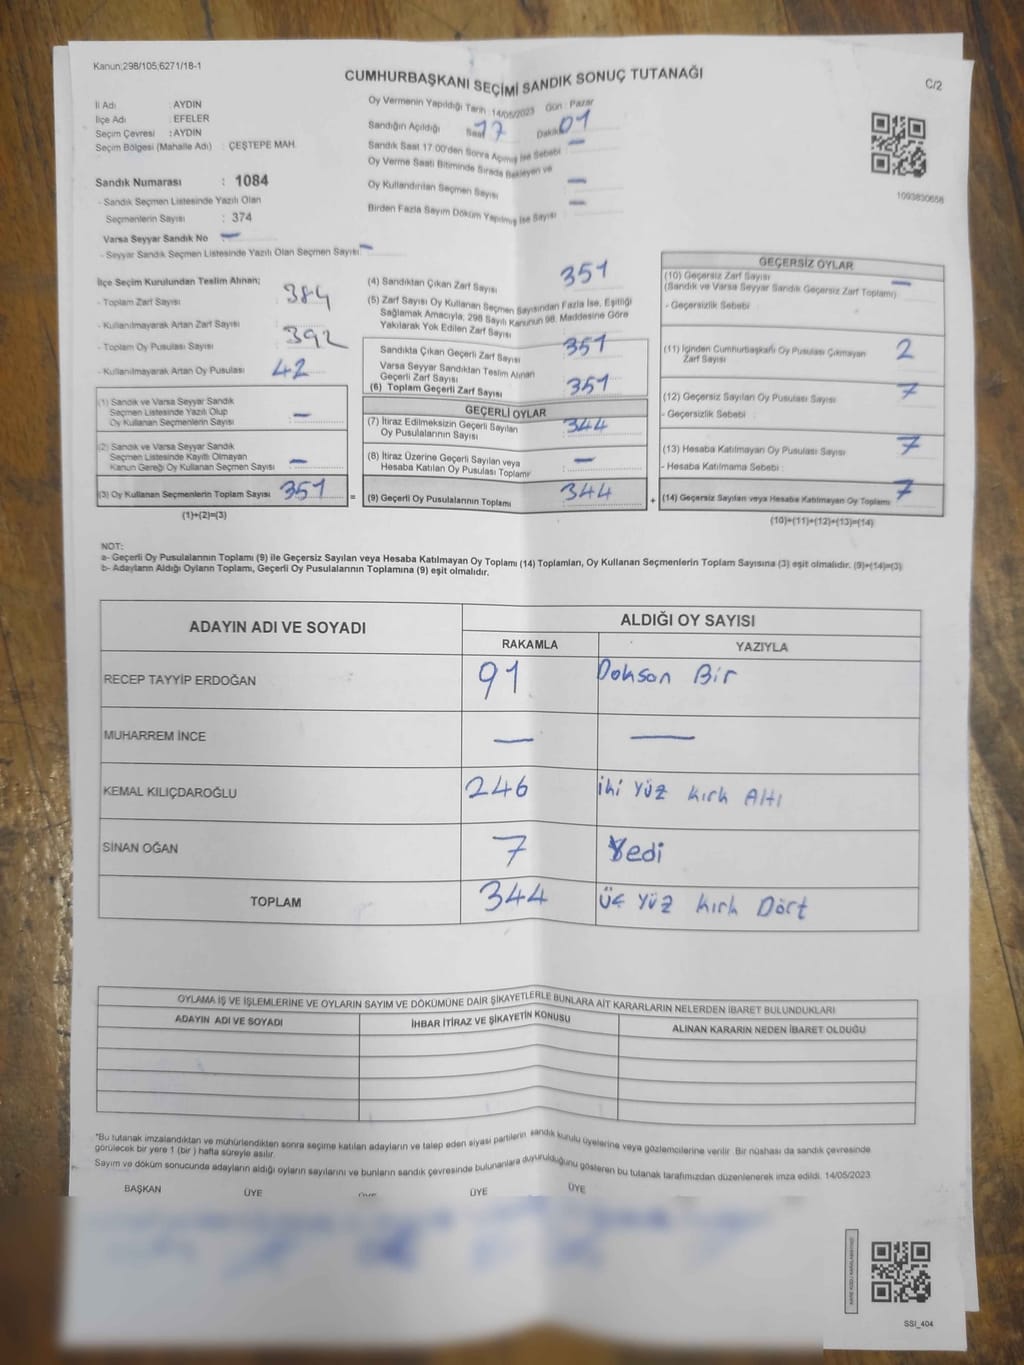 Kanun;298/105;6271/18-1
CUMHURBAŞKANI SEÇİMİ SANDIK SONUÇ TUTANAĞI
C/2
İl Adı : AYDIN
İlçe Adı : EFELER
Seçim Çevresi : AYDIN
Seçim Bölgesi (Mahalle Adı) : ÇEŞTEPE MAH.
Sandık Numarası : 1084
- Sandık Seçmen Listesinde Yazılı Olan
Seçmenlerin Sayısı : 374
Varsa Seyyar Sandık No : —
- Seyyar Sandık Seçmen Listesinde Yazılı Olan Seçmen Sayısı: —
Oy Vermenin Yapıldığı Tarih 14/05/2023 Gün : Pazar
Sandığın Açıldığı Saat 17 Dakika 01
Sandık Saat 17:00'den Sonra Açılmış İse Sebebi : —
Oy Verme Saati Bitiminde Sırada Bekleyen ve
Oy Kullandırılan Seçmen Sayısı : —
Birden Fazla Sayım Döküm Yapılmış İse Sayısı : —
1093830658
İlçe Seçim Kurulundan Teslim Alınan;
- Toplam Zarf Sayısı : 384
- Kullanılmayarak Artan Zarf Sayısı :
- Toplam Oy Pusulası Sayısı : 392
- Kullanılmayarak Artan Oy Pusulası : 42
(1) Sandık ve Varsa Seyyar Sandık
Seçmen Listesinde Yazılı Olup
Oy Kullanan Seçmenlerin Sayısı : —
(2) Sandık ve Varsa Seyyar Sandık
Seçmen Listesinde Kayıtlı Olmayan
Kanun Gereği Oy Kullanan Seçmen Sayısı : —
(3) Oy Kullanan Seçmenlerin Toplam Sayısı : 351
(1)+(2)=(3)
(4) Sandıktan Çıkan Zarf Sayısı : 351
(5) Zarf Sayısı Oy Kullanan Seçmen Sayısından Fazla İse, Eşitliği
Sağlamak Amacıyla; 298 Sayılı Kanunun 98. Maddesine Göre
Yakılarak Yok Edilen Zarf Sayısı :
Sandıkta Çıkan Geçerli Zarf Sayısı : 351
Varsa Seyyar Sandıktan Teslim Alınan
Geçerli Zarf Sayısı :
(6) Toplam Geçerli Zarf Sayısı : 351
GEÇERLİ OYLAR
(7) İtiraz Edilmeksizin Geçerli Sayılan
Oy Pusulalarının Sayısı : 344
(8) İtiraz Üzerine Geçerli Sayılan veya
Hesaba Katılan Oy Pusulası Toplamı : —
= (9) Geçerli Oy Pusulalarının Toplamı : 344
GEÇERSİZ OYLAR
(10) Geçersiz Zarf Sayısı : —
(Sandık ve Varsa Seyyar Sandık Geçersiz Zarf Toplamı)
- Geçersizlik Sebebi :
(11) İçinden Cumhurbaşkanı Oy Pusulası Çıkmayan
Zarf Sayısı : 2
(12) Geçersiz Sayılan Oy Pusulası Sayısı : 7
- Geçersizlik Sebebi :
(13) Hesaba Katılmayan Oy Pusulası Sayısı : 7
- Hesaba Katılmama Sebebi :
+ (14) Geçersiz Sayılan veya Hesaba Katılmayan Oy Toplamı : 7
(10)+(11)+(12)+(13)=(14)
NOT:
a- Geçerli Oy Pusulalarının Toplamı (9) ile Geçersiz Sayılan veya Hesaba Katılmayan Oy Toplamı (14) Toplamları, Oy Kullanan Seçmenlerin Toplam Sayısına (3) eşit olmalıdır. (9)+(14)=(3)
b- Adayların Aldığı Oyların Toplamı, Geçerli Oy Pusulalarının Toplamına (9) eşit olmalıdır.
ADAYIN ADI VE SOYADI ALDIĞI OY SAYISI
RAKAMLA YAZIYLA
RECEP TAYYİP ERDOĞAN 91 Doksan Bir
MUHARREM İNCE — —
KEMAL KILIÇDAROĞLU 246 İki Yüz Kırk Altı
SİNAN OĞAN 7 Yedi
TOPLAM 344 Üç Yüz Kırk Dört
OYLAMA İŞ VE İŞLEMLERİNE VE OYLARIN SAYIM VE DÖKÜMÜNE DAİR ŞİKAYETLERLE BUNLARA AİT KARARLARIN NELERDEN İBARET BULUNDUKLARI
ADAYIN ADI VE SOYADI İHBAR İTİRAZ VE ŞİKAYETİN KONUSU ALINAN KARARIN NEDEN İBARET OLDUĞU
*Bu tutanak imzalandıktan ve mühürlendikten sonra seçime katılan adayların ve talep eden siyasi partilerin sandık kurulu üyelerine veya gözlemcilerine verilir. Bir nüshası da sandık çevresinde
görülecek bir yere 1 (bir) hafta süreyle asılır.
Sayım ve döküm sonucunda adayların aldığı oyların sayılarını ve bunların sandık çevresinde bulunanlara duyurulduğunu gösteren bu tutanak tarafımızdan düzenlenerek imza edildi. 14/05/2023
BAŞKAN ÜYE ÜYE ÜYE ÜYE
SSI_404